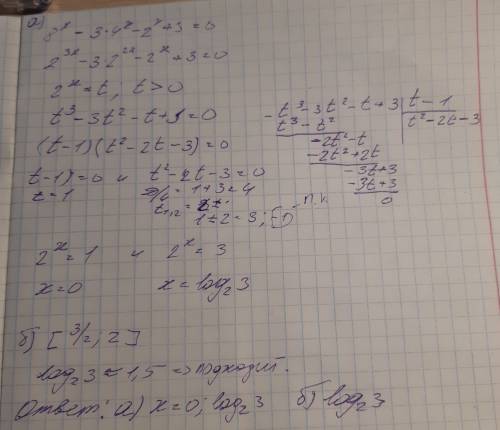 а)
8ˣ - 3·4ˣ - 2ˣ + 3 = 0
2³ˣ - 3·2²ˣ - 2ˣ + 3 = 0
2ˣ = t, t > 0
t³ - 3t² - t + 3 = 0
(t-1)(t² - 2t - 3) = 0
t-1) = 0 и t² - 2t - 3 = 0
t = 1 D/4 = 1+3 = 4
1±2 = 3; -1 - п.к.
- t³ - 3t² - t + 3 | t - 1
t³ - t² | t² - 2t - 3
-2t² - t
-2t² + 2t
-3t + 3
-3t + 3
0
2ˣ = 1 и 2ˣ = 3
x = 0 x = log₂3
б) [3/2; 2]
log₂3 ≈ 1,5 => подходит.
Ответ: а) x = 0; log₂3 б) log₂3